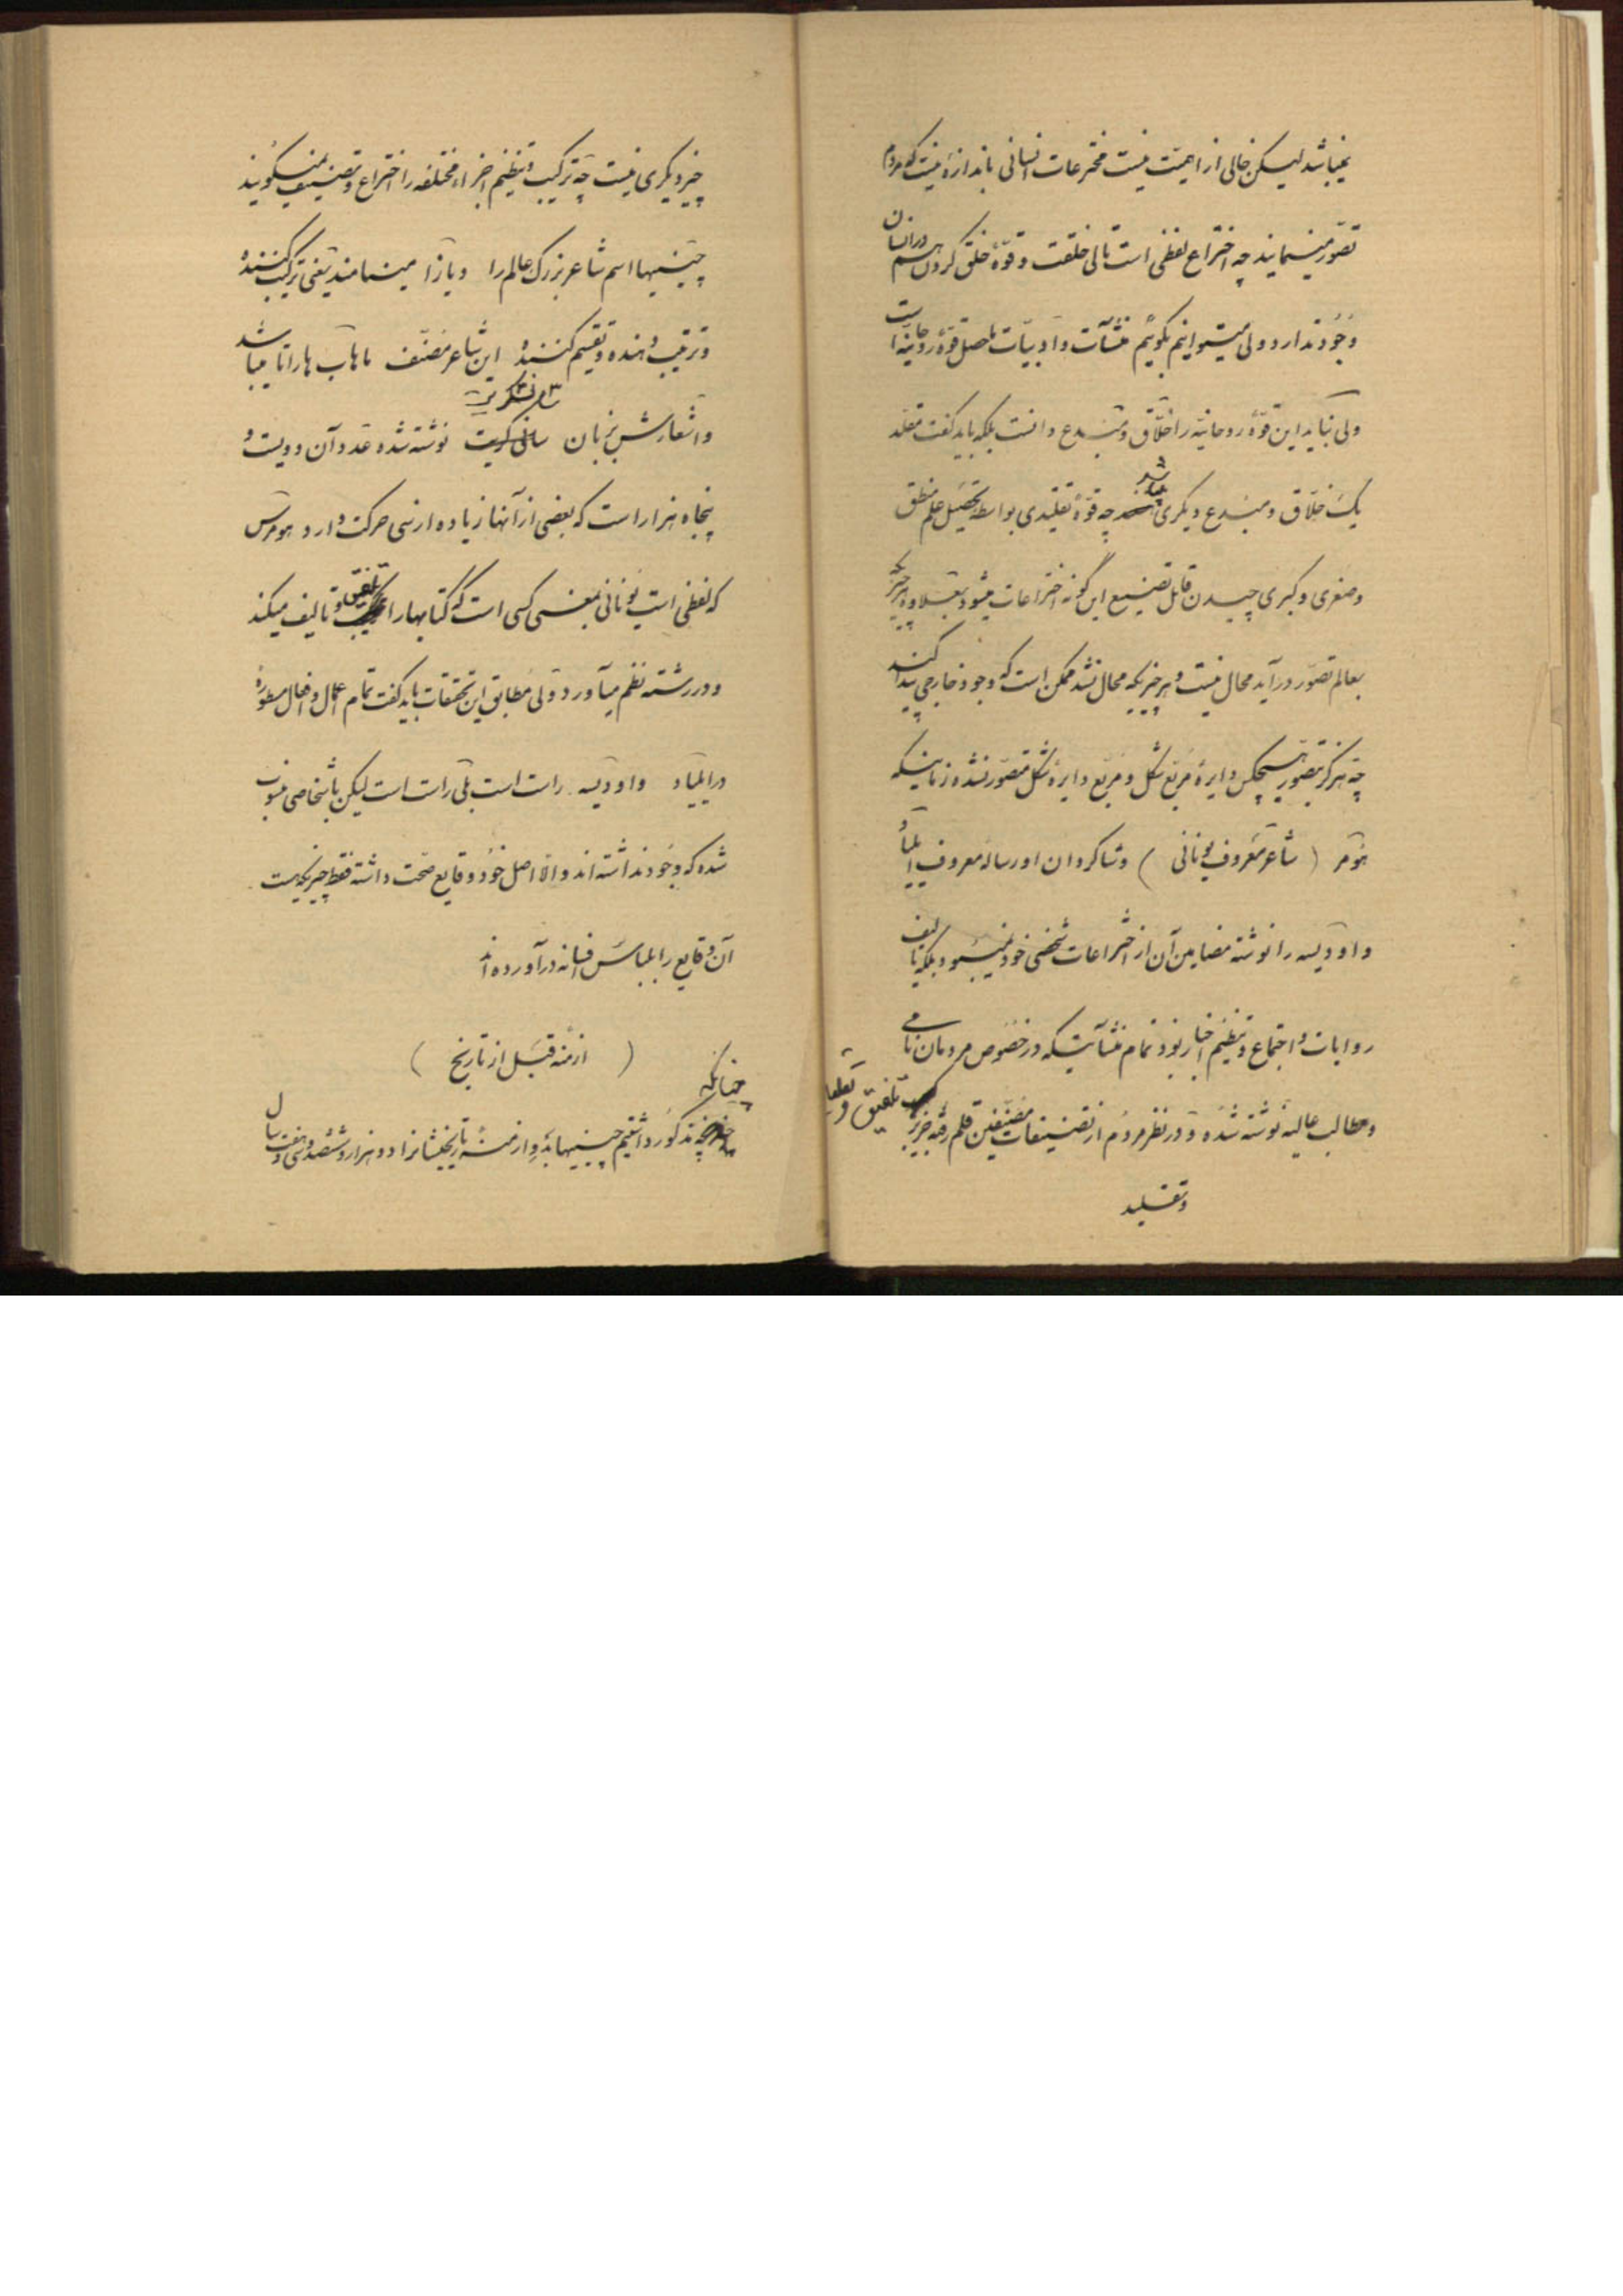 نمیباشد لیکن خالی از اهمیت نیست مخترعات انسانی باندازهٔ نیست که مردم
تصور مینمایند چه اختراع لفظی است تالی خلقت و قوّهٔ خلق کردن هم در انسان
وجود ندارد ولی میتوانیم بگوئیم منشآت و ادبیات ماحصل قوهٔ روحانیه است
ولی نباید این قوهٔ روحانیه را خلاق و مبدع دانست بلکه باید گفت مقلد
یک خلاق و مبدع دیگری میباشد چه قوهٔ تقلیدی بواسطهٔ تحصیل علم منطق
و صغری و کبری چیدن قابل تصنیع این گونه اختراعات میشود بعلاوه چیزیکه
بعالم تصور درآید محال نیست و هر چیزیکه محال نشد ممکن است که وجود خارجی پیدا کند
چه هرگز بتصور هیچکس دایرهٔ مربع شکل و مربع دایره شکل متصور نشده زمانیکه
هومر ( شاعر معروف یونانی ) و شاگردان او رسالهٔ معروف ایلیاد
و اودیسه را نوشته مضامین آن از اختراعات شخصی خود نمیبود بلکه تالیف
روایات و اجتماع و تنظیم اخبار بود تمام منشآتیکه در خصوص مردمان نامی
و مطالب عالیه نوشته شده و در نظر مردم از تصنیفات مصنفین قلم رفته جز تلفیق و تقطیع
و تقلید
چیز دیگری نیست چه ترکیب و تنظیم اجزاء مختلفه را اختراع و تصنیف میگویند
چنینیها اسم شاعر بزرگ عالم را ویازا مینامند یعنی ترکیب کننده
و ترتیب دهنده و تقسیم کننده این شاعر مصنف ماهاب هاراتا میباشد
و اشعارش بزبان سانسکریت نوشته شده عدد آن دویست و
پنجاه هزار است که بعضی از آنها زیاده از سی حرکت دارد هومرس
که لفظی است یونانی بمعنی کسی است که کتابها را تلفیق و تالیف میکند
و در رشته نظم میآورد ولی مطابق این تحقیقات باید گفت تمام اعمال و افعال مسطورهٔ
در ایلیاد و اودیسه راست است بلی راست است لیکن باشخاصی منسوب
شده که وجود نداشته اند والا اصل خود وقایع صحت داشته فقط چیزیکه هست
آن وقایع را بلباس افسانه درآورده اند
( ازمنه قبل از تاریخ )
چنانکه مذکور داشتیم چنینیها بدو ازمنهٔ تاریخیشانرا دو هزار و ششصد و سی و هفت سال